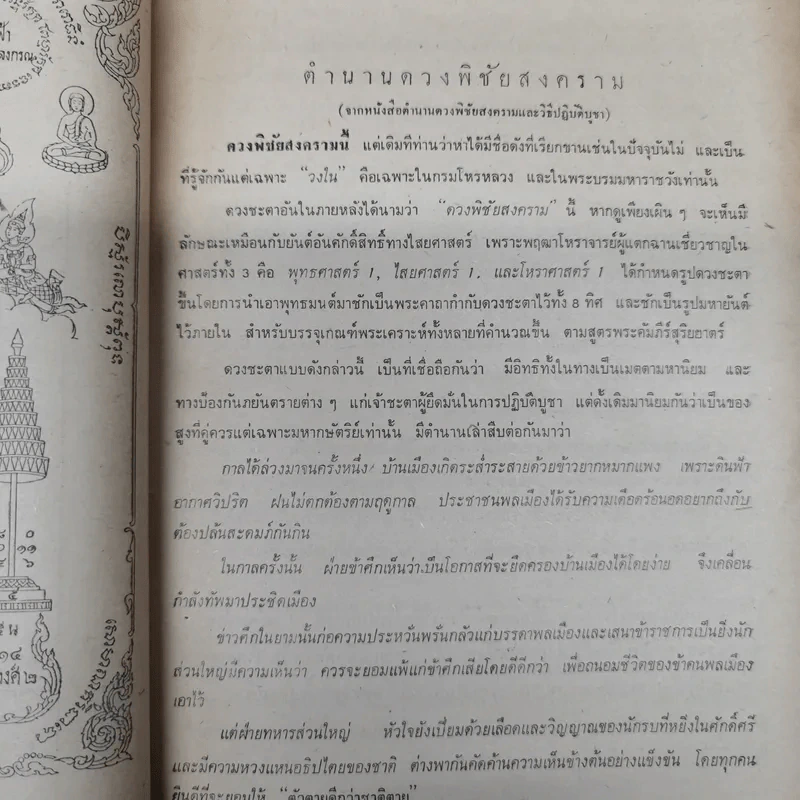 ฟ้า
ลงกรณ
ตำนานดวงพิชัยสงคราม
(จากหนังสือตำนานดวงพิชัยสงครามและวิธีปฏิบัติบูชา)
ดวงพิชัยสงครามนี้ แต่เดิมทีท่านว่าหาได้มีชื่อดังที่เรียกขานเช่นในปัจจุบันไม่ และเป็น
ที่รู้จักกันแต่เฉพาะ “วงใน” คือเฉพาะในกรมโหรหลวง และในพระบรมมหาราชวังเท่านั้น
ดวงชะตาอันในภายหลังได้นามว่า “ดวงพิชัยสงคราม” นี้ หากดูเพียงเผิน ๆ จะเห็นมี
ลักษณะเหมือนกับยันต์อันศักดิ์สิทธิ์ทางไสยศาสตร์ เพราะพฤฒาโหราจารย์ผู้แตกฉานเชี่ยวชาญใน
ศาสตร์ทั้ง 3 คือ พุทธศาสตร์ 1, ไสยศาสตร์ 1. และโหราศาสตร์ 1 ได้กำหนดรูปดวงชะตา
ขึ้นโดยการนำเอาพุทธมนต์มาชักเป็นพระคาถากำกับดวงชะตาไว้ทั้ง 8 ทิศ และชักเป็นรูปมหายันต์
ไว้ภายใน สำหรับบรรจุเกณฑ์พระเคราะห์ทั้งหลายที่คำนวณขึ้น ตามสูตรพระคัมภีร์สุริยยาตร์
ดวงชะตาแบบดังกล่าวนี้ เป็นที่เชื่อถือกันว่า มีอิทธิทั้งในทางเป็นเมตตามหานิยม และ
ทางป้องกันภยันตรายต่าง ๆ แก่เจ้าชะตาผู้ยึดมั่นในการปฏิบัติบูชา แต่ดั้งเดิมมานิยมกันว่าเป็นของ
สูงที่คู่ควรแต่เฉพาะมหากษัตริย์เท่านั้น มีตำนานเล่าสืบต่อกันมาว่า
กาลได้ล่วงมาจนครั้งหนึ่ง บ้านเมืองเกิดระส่ำระสายด้วยข้าวยากหมากแพง เพราะดินฟ้า
อากาศวิปริต ฝนไม่ตกต้องตามฤดูกาล ประชาชนพลเมืองได้รับความเดือดร้อนอดอยากถึงกับ
ต้องปล้นสะดมภ์กันกิน
ในกาลครั้งนั้น ฝ่ายข้าศึกเห็นว่าเป็นโอกาสที่จะยึดครองบ้านเมืองได้โดยง่าย จึงเคลื่อน
กำลังทัพมาประชิดเมือง
ข่าวศึกในยามนั้นก่อความประหวั่นพรั่นกลัวแก่บรรดาพลเมืองและเสนาข้าราชการเป็นยิ่งนัก
ส่วนใหญ่มีความเห็นว่า ควรจะยอมแพ้แก่ข้าศึกเสียโดยดีดีกว่า เพื่อถนอมชีวิตของข้าคนพลเมือง
เอาไว้
แต่ฝ่ายทหารส่วนใหญ่ หัวใจยังเปี่ยมด้วยเลือดและวิญญาณของนักรบที่หยิ่งในศักดิ์ศรี
และมีความหวงแหนอธิปไตยของชาติ ต่างพากันคัดค้านความเห็นข้างต้นอย่างแข็งขัน โดยทุกคน
ยินดีที่จะยอมให้ “ตัวตายดีกว่าชาติตาย”